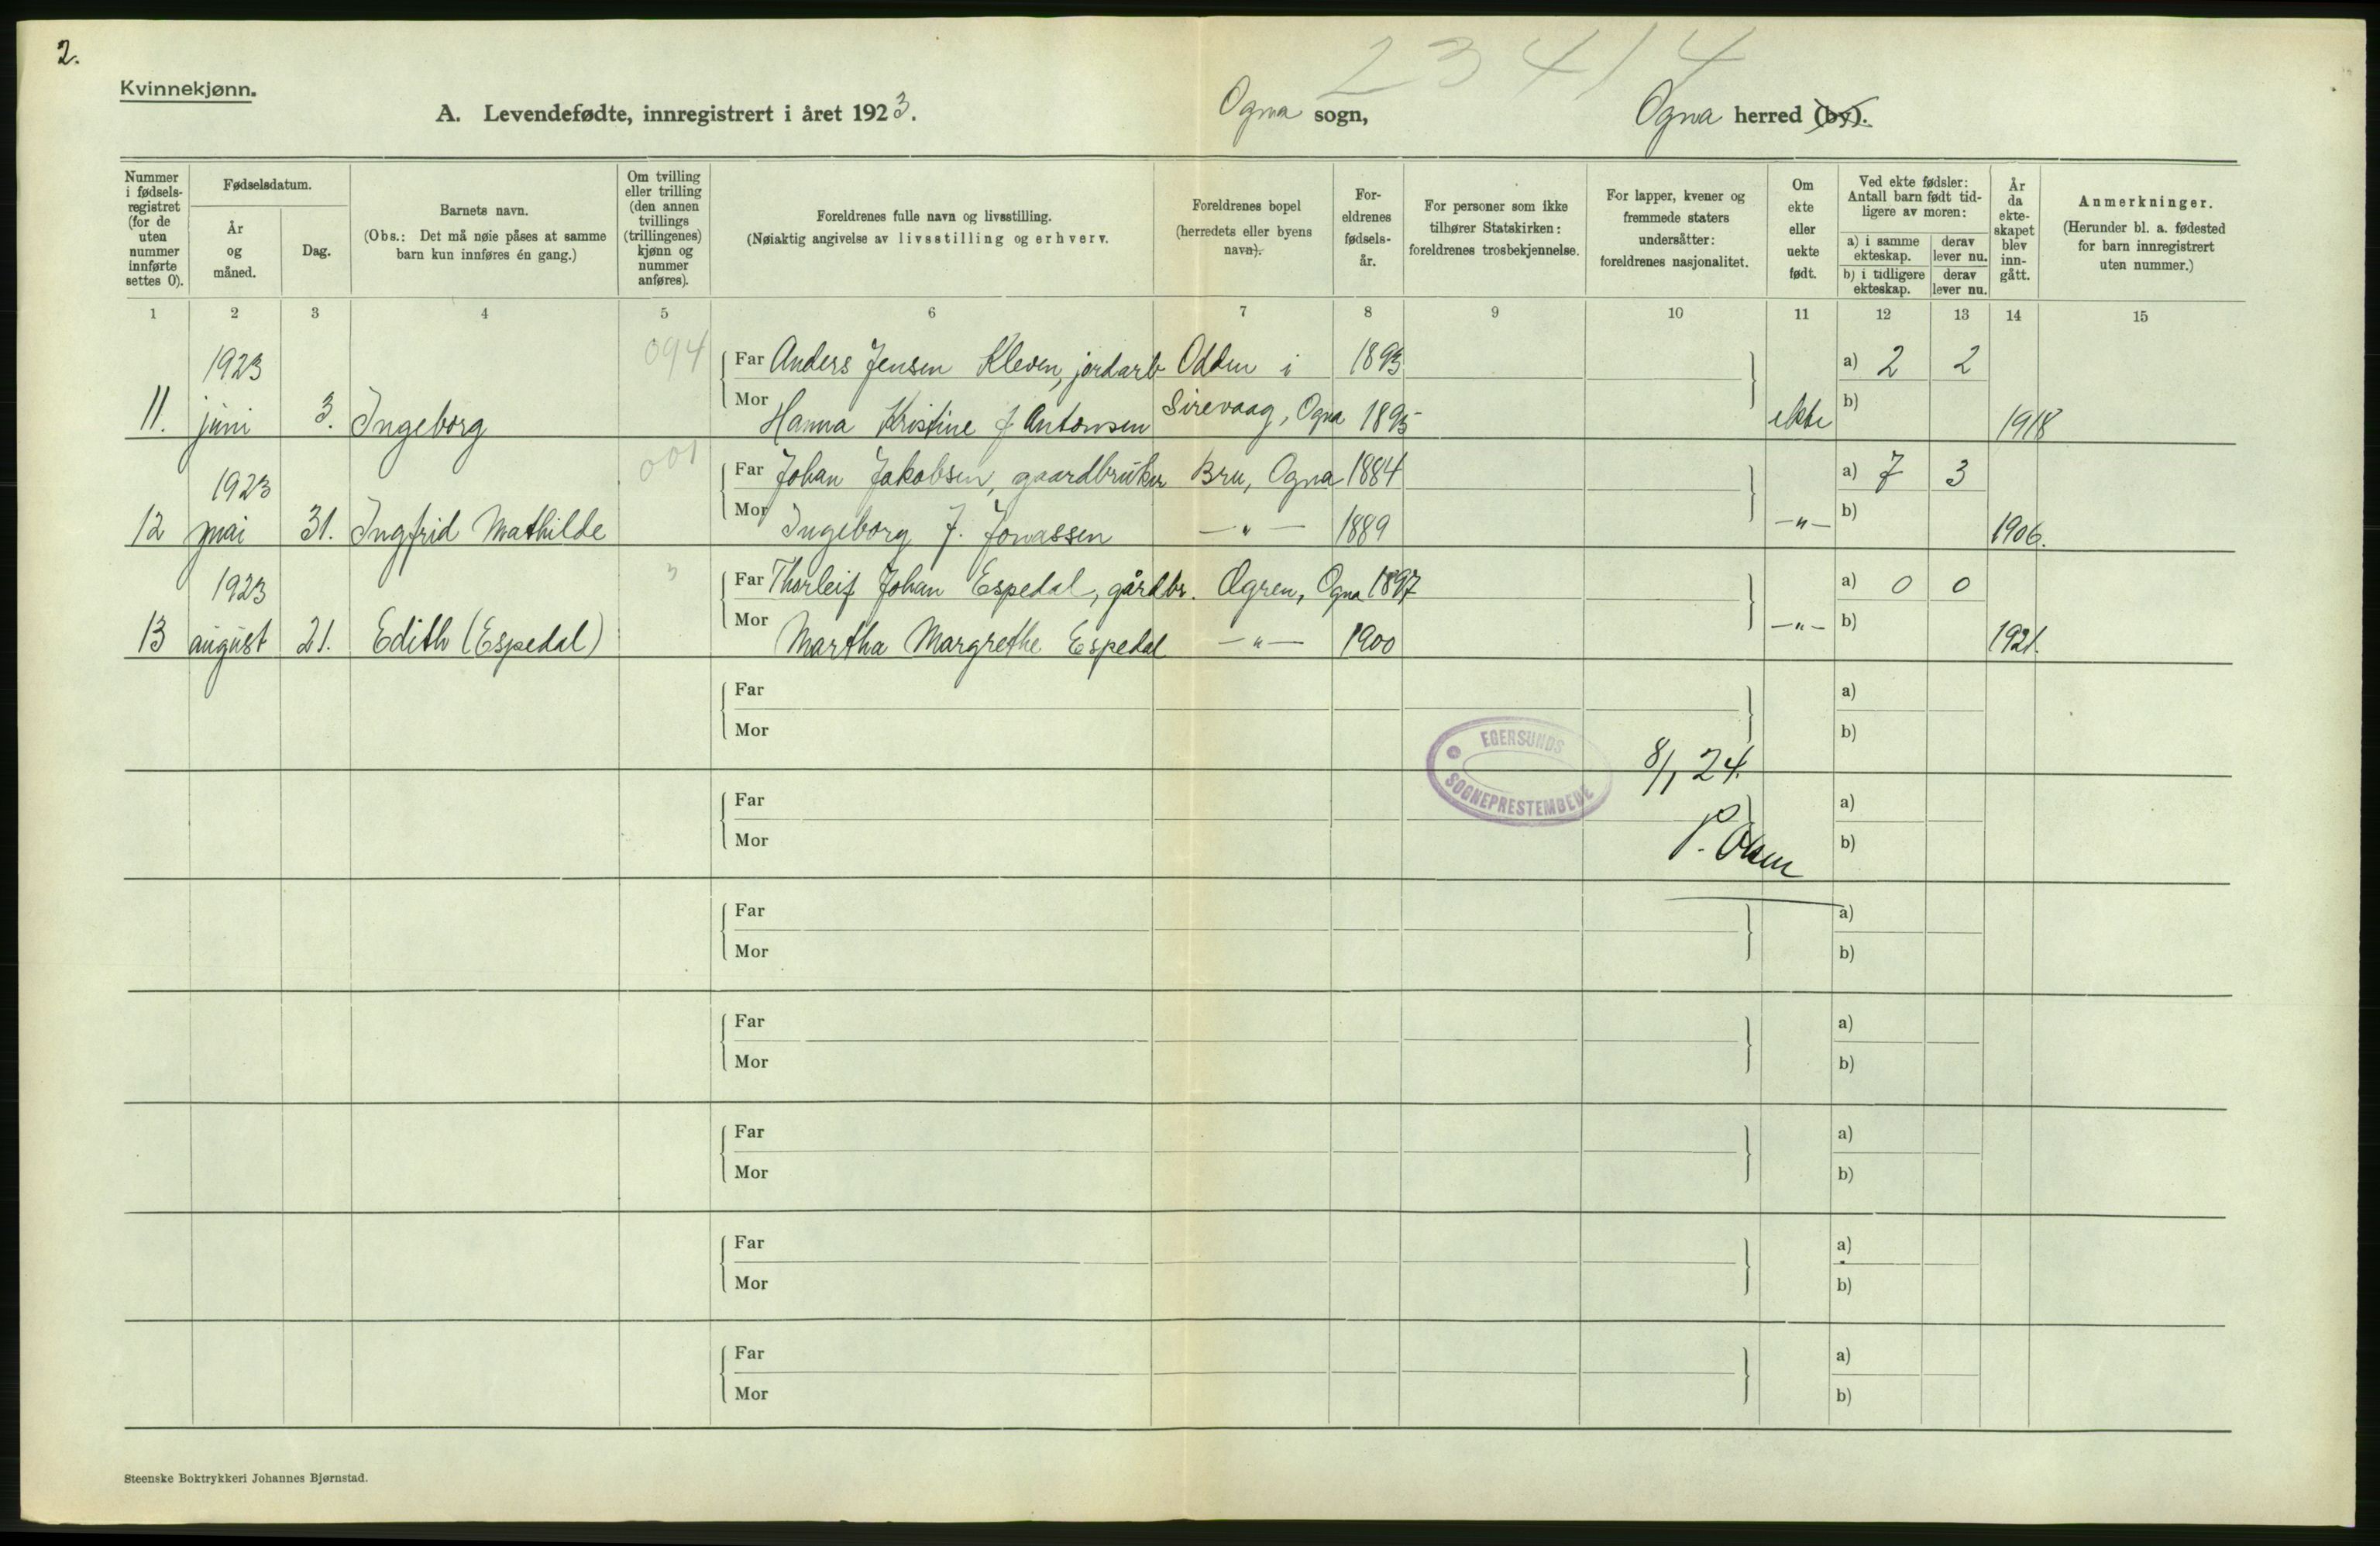 2.
23414
Kvinnekjønn.
A. Levendefødte, innregistrert i året 1923. Ogna sogn, Ogna herred (by).
Nummer i fødselsregistret (for de uten nummer innførte settes 0).
Fødselsdatum.
År og måned.
Dag.
Barnets navn.
(Obs.: Det må nøie påses at samme barn kun innføres én gang.)
Om tvilling eller trilling (den annen tvillings (trillingenes) kjønn og nummer anføres).
Foreldrenes fulle navn og livsstilling.
(Nøiaktig angivelse av livsstilling og erhverv.
Foreldrenes bopel (herredets eller byens navn).
For-eldrenes fødsels-år.
For personer som ikke tilhører Statskirken: foreldrenes trosbekjennelse.
For lapper, kvener og fremmede staters undersåtter: foreldrenes nasjonalitet.
Om ekte eller uekte født.
Ved ekte fødsler: Antall barn født tid-ligere av moren:
a) i samme ekteskap. derav lever nu.
b) i tidligere ekteskap. derav lever nu.
År da ekte-skapet blev inn-gått.
Anmerkninger.
(Herunder bl. a. fødested for barn innregistrert uten nummer.)
1 2 3 4 5 6 7 8 9 10 11 12 13 14 15
1923 094 Far Anders Jensen Kleven, jordarb Odden i 1893 a) 2 2
11. juni 3. Ingeborg Mor Hanna Kristine J Antonsen Sirevaag, Ogna 1895 ekte b) 1918
1923 001 Far Johan Jakobsen, gaardbruker Bru, Ogna 1884 a) 7 3
12 mai 31. Ingfrid Mathilde Mor Ingeborg J. Jonassen —"— 1889 —"— b) 1906.
1923 3 Far Thorleif Johan Espedal, gårdbr. Ogren, Ogna 1897 a) 0 0
13 august 21. Edith (Espedal) Mor Martha Margrethe Espedal —"— 1900 —"— b) 1921.
Far a)
Mor b)
EGERSUNDS SOGNEPRESTEMBEDE
8/1 24.
Far a)
Mor b)
P.
Far a)
Mor b)
Far a)
Mor b)
Far a)
Mor b)
Far a)
Mor b)
Far a)
Mor b)
Steenske Boktrykkeri Johannes Bjørnstad.